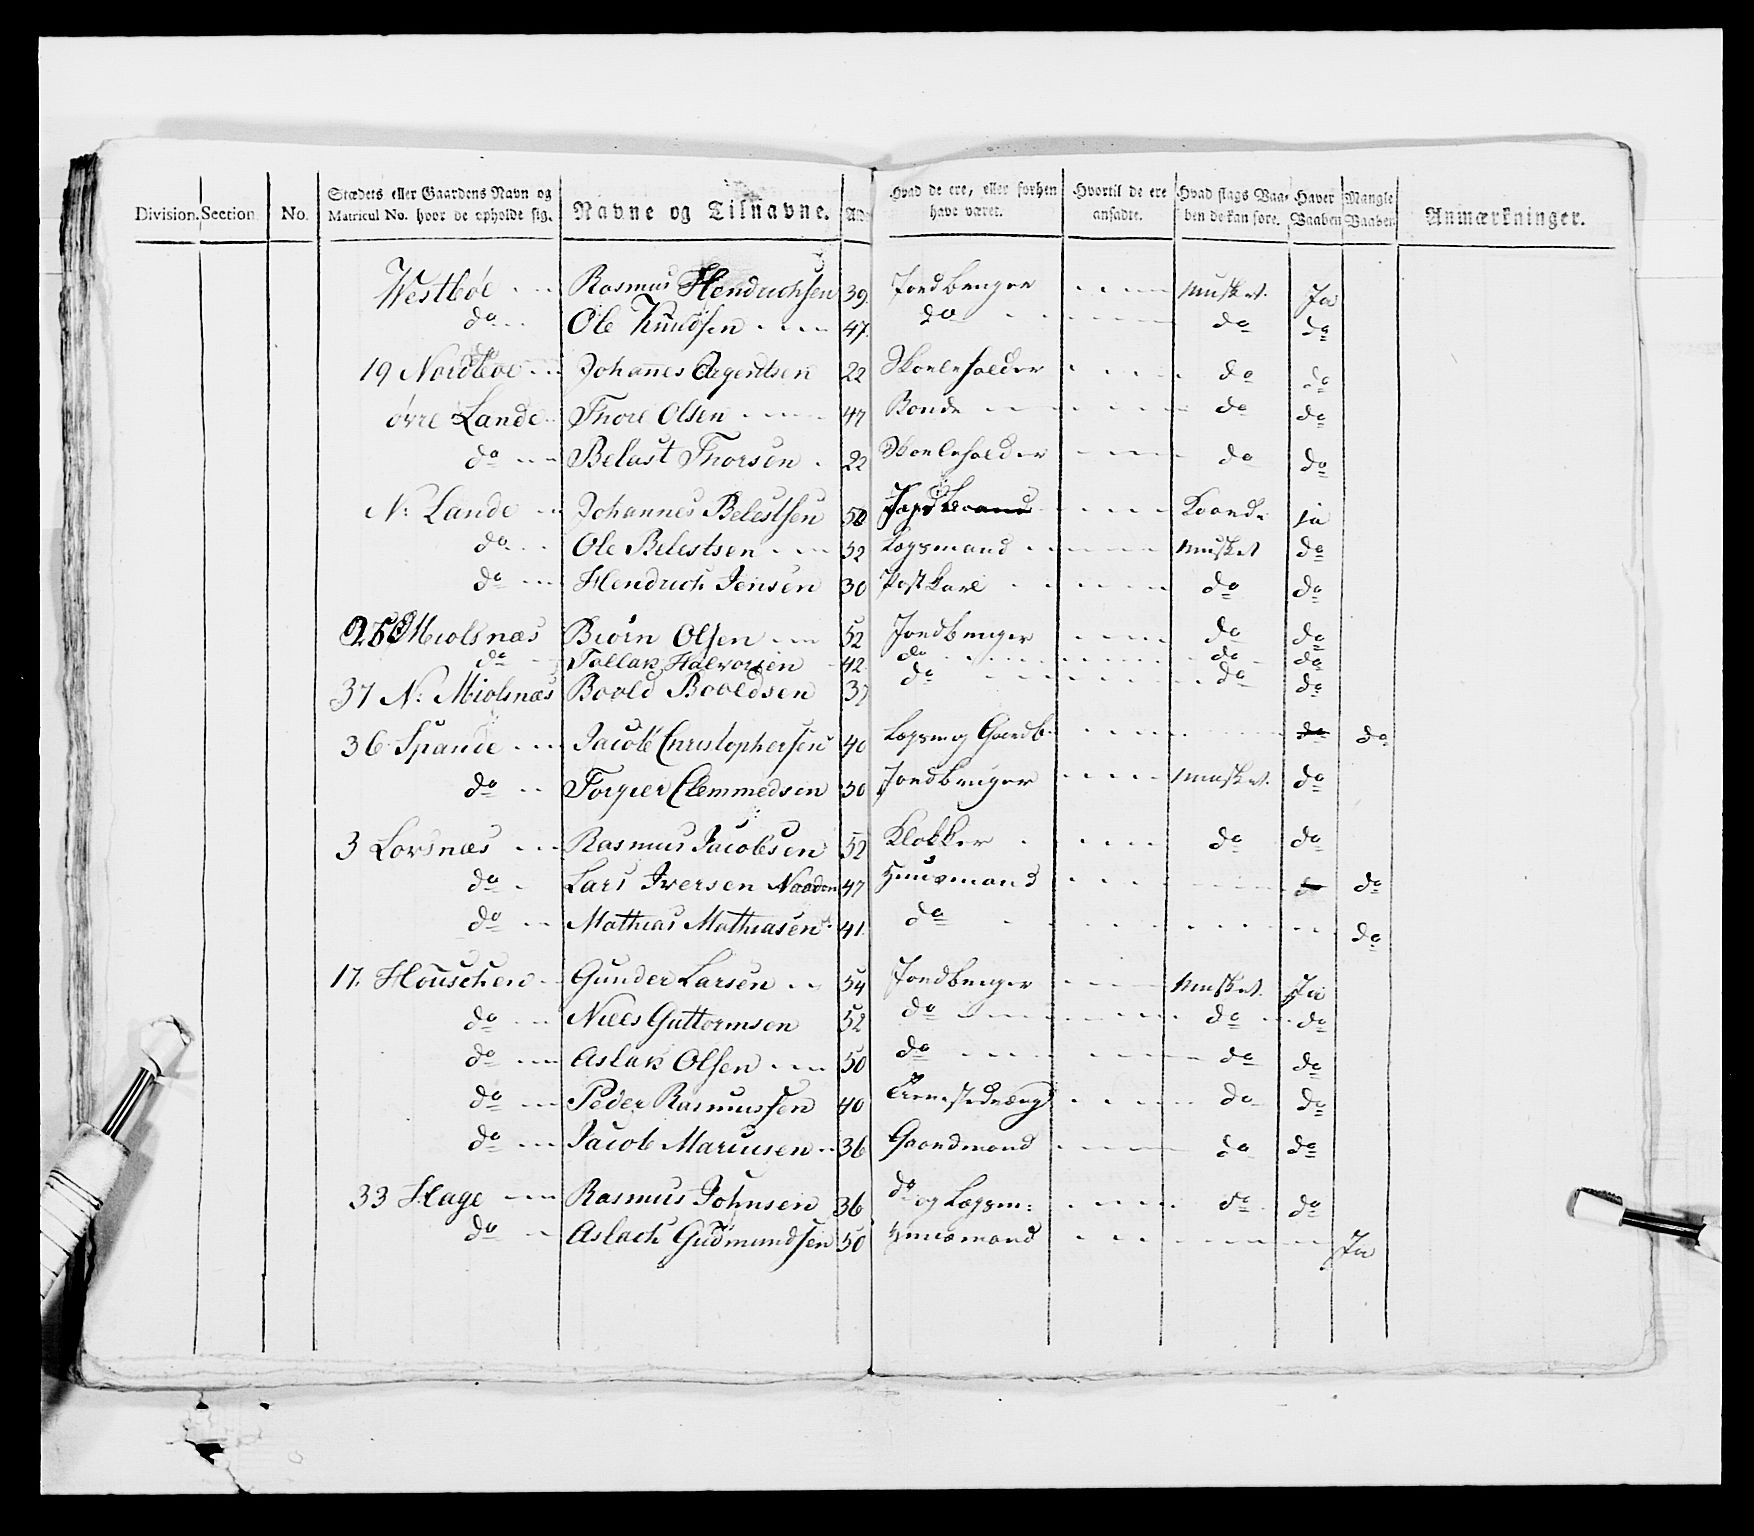 Division. Section. No. Stædets eller Gaardens Navn og Matricul No. hvor de opholde sig. Navne og Tilnavne. Ald. Hvad de ere, eller forhen have været. Hvortil de ere ansadte. Hvad slags Vaaben de kan føre. Haver Vaaben Mangle Vaaben Anmærkninger.
Westbøe Rasmus Hendrichsen 39. Jordbruger Musket. Ja
do Ole Knudsen 47. do do do
19 Nordbøe Johannes Aagendtsen 22 Skoleholder do do
øvre Lande Thore Olsen 47 Bonde do do
do Belast Thorsen 22 Skoleholder do do
N: Lande Johannes Belestsen 50 Kaarde ja
do Ole Belestsen 52 Logsmand Musket do
do Hendrich Jensen 30 Postkarl do do
Miolsnæs Biørn Olsen 52 Jordbruger do do
do Tollak Halvorsen 42. do do do
37 N: Miolsnæs Boold Booldsen 37 do do do
36 Spande Jacob Christophersen 40 Logsm og Gaardb. do do
do Torgier Clemmedsen 50 Jordbruger Musket. do
3 Lorsnæs Rasmus Jacobsen 52 Klokker do do
do Lars Iversen Naadon 47 Huusmand do do
do Mathias Mathiasen 41. do do
17. Houschen Gunder Larsen 54 Jordbruger Musket. Ja
do Niels Guttormsen 52 do do do
do Aslak Olsen 50 do do do
do Peder Rasmussen 40 Tienestedræng do do
do Jacob Mariusen 36 Gaardmand do do
33 Hage Rasmus Johnsen 36 do og Logsm: do do
do Aslach Gudmundsen 50 Huusmand Ja